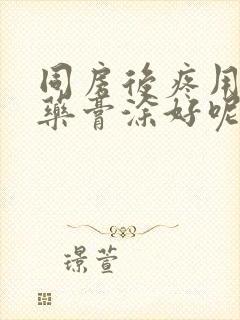 同房後疼用
藥膏涂好呢
璟萱